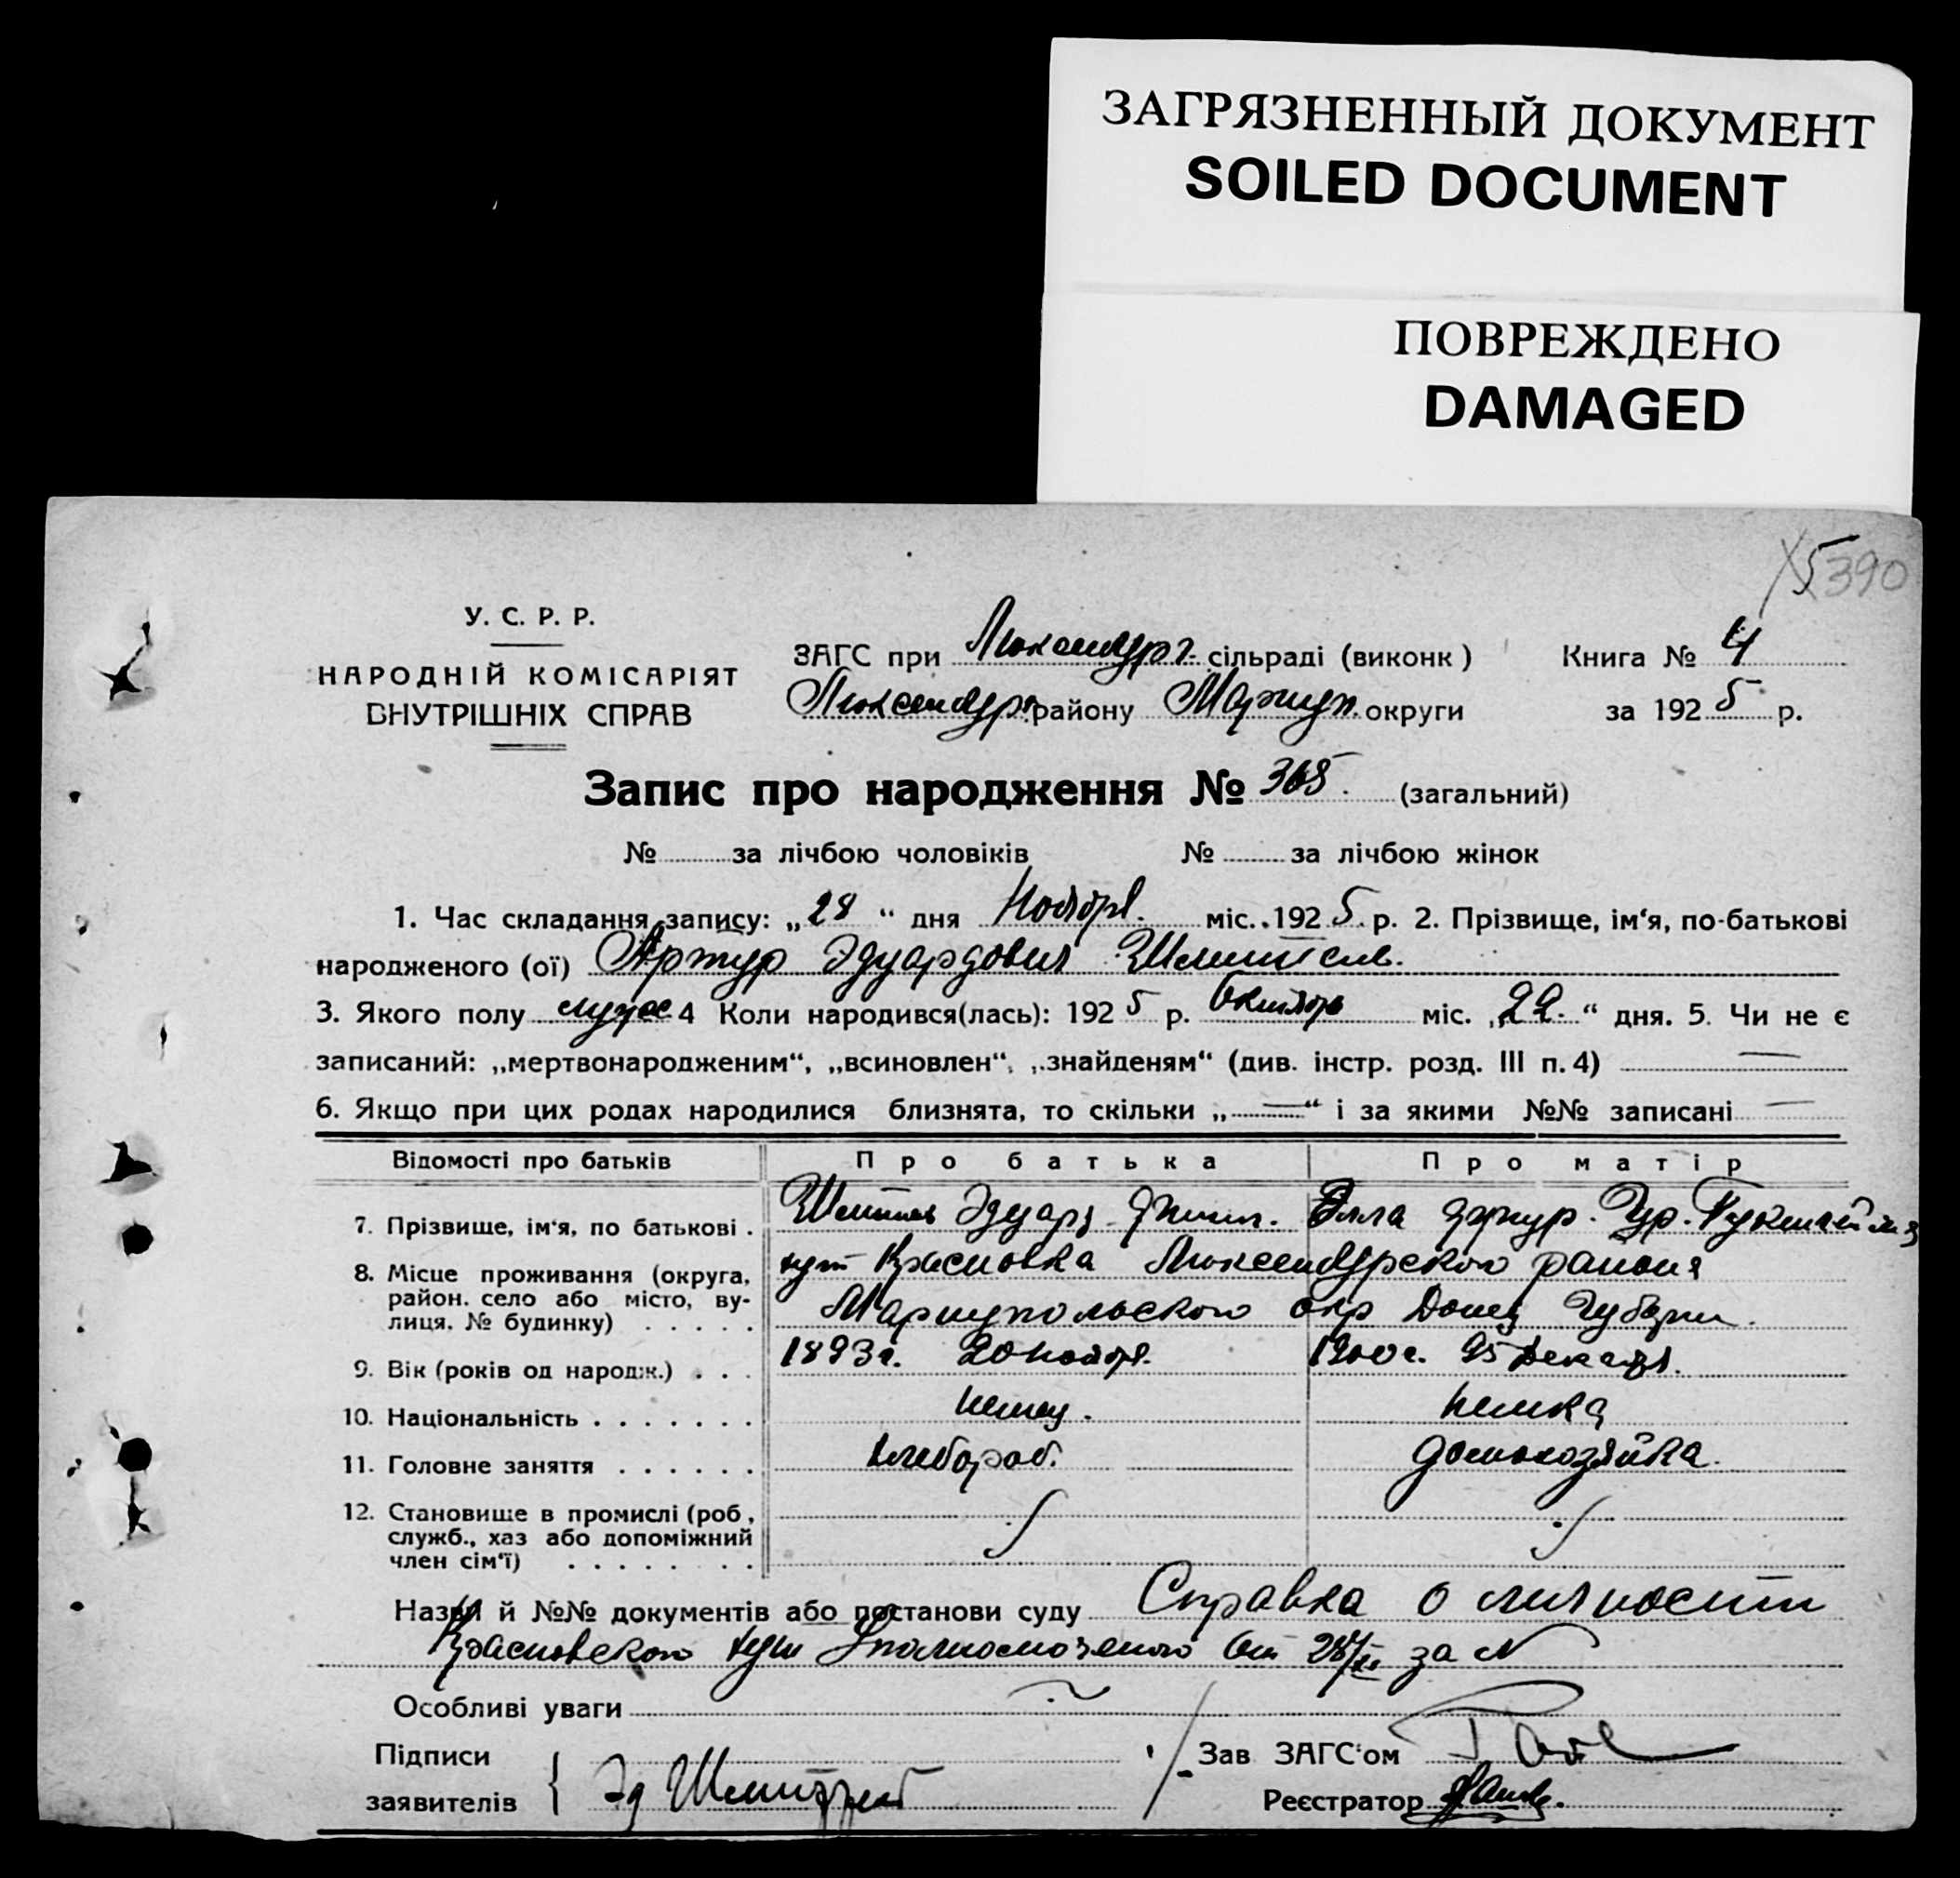 ЗАГРЯЗНЕННЫЙ ДОКУМЕНТ
SOILED DOCUMENT
ПОВРЕЖДЕНО
DAMAGED
5 390
У. С. Р. Р.
НАРОДНІЙ КОМІСАРІЯТ
ВНУТРІШНІХ СПРАВ
ЗАГС при Люксембург. сільраді (виконк)
Люксембург. району Мариуп. округи
Книга № 4
за 1925 р.
Запис про народження № 365. (загальний)
№ за лічбою чоловіків № за лічбою жінок
1. Час складання запису: „28“ дня Ноября. міс. 1925 р. 2. Прізвище, ім‘я, по-батькові
народженого (ої) Артур Эдуардович
3. Якого полу 4 Коли народився(лась): 1925 р. Октября міс. „22.“ дня. 5. Чи не є
записаний: „мертвонародженим“, „всиновлен“, „знайденям“ (див. інстр. розд. III п. 4) —
6. Якщо при цих родах народилися близнята, то скільки „—“ і за якими №№ записані —
Відомості про батьків Про батька Про матір
7. Прізвище, ім‘я, по батькові . Эдуард Элла Ур.
8. Місце проживання (округа, район, село або місто, вулиця, № будинку) . . . . . хут Красновка Люксембургского района
Мариупольского окр Донец Губерни.
9. Вік (років од народж.) . . . 1893г. 20 ноября. 1900г. 25 Декабря.
10. Національність . . . . . . . немец. немка
11. Головне заняття . . . . . . хлебороб. домохозяйка.
12. Становище в промислі (роб, служб., хаз або допоміжний член сім‘ї) . . . . . . . .
Назви й №№ документів або постанови суду Справка о личности
Красновского хут Уполномоченого от 28/XI за N
Особливі уваги
Підписи
заявителів Эд
Зав ЗАГС‘ом
Реєстратор